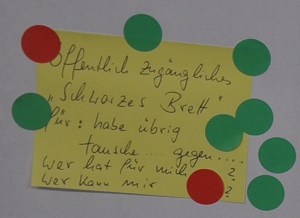 Öffentlich zugängliches
"Schwarzes Brett"
für: habe übrig
tausche .... gegen ....
wer hat für mich ?
wer kann mir ?